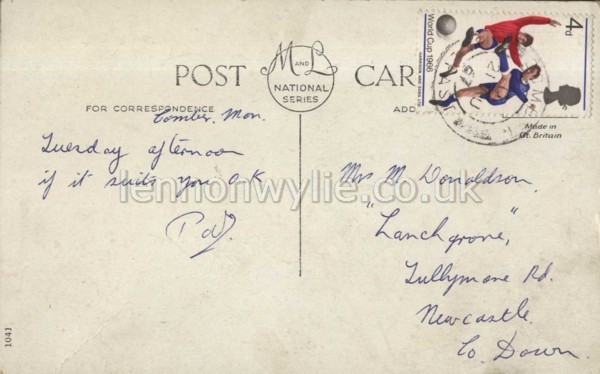 POST CARD
M AND L
NATIONAL
SERIES
FOR CORRESPONDENCE
Comber, Mon.
Tuesday afternoon
if it suits you O.K
Mrs M. Donaldson,
Tullymore Rd.
Newcastle.
Co. Down.
World Cup 1966
4d
Made in
Gt. Britain
lennonwylie.co.uk
1041